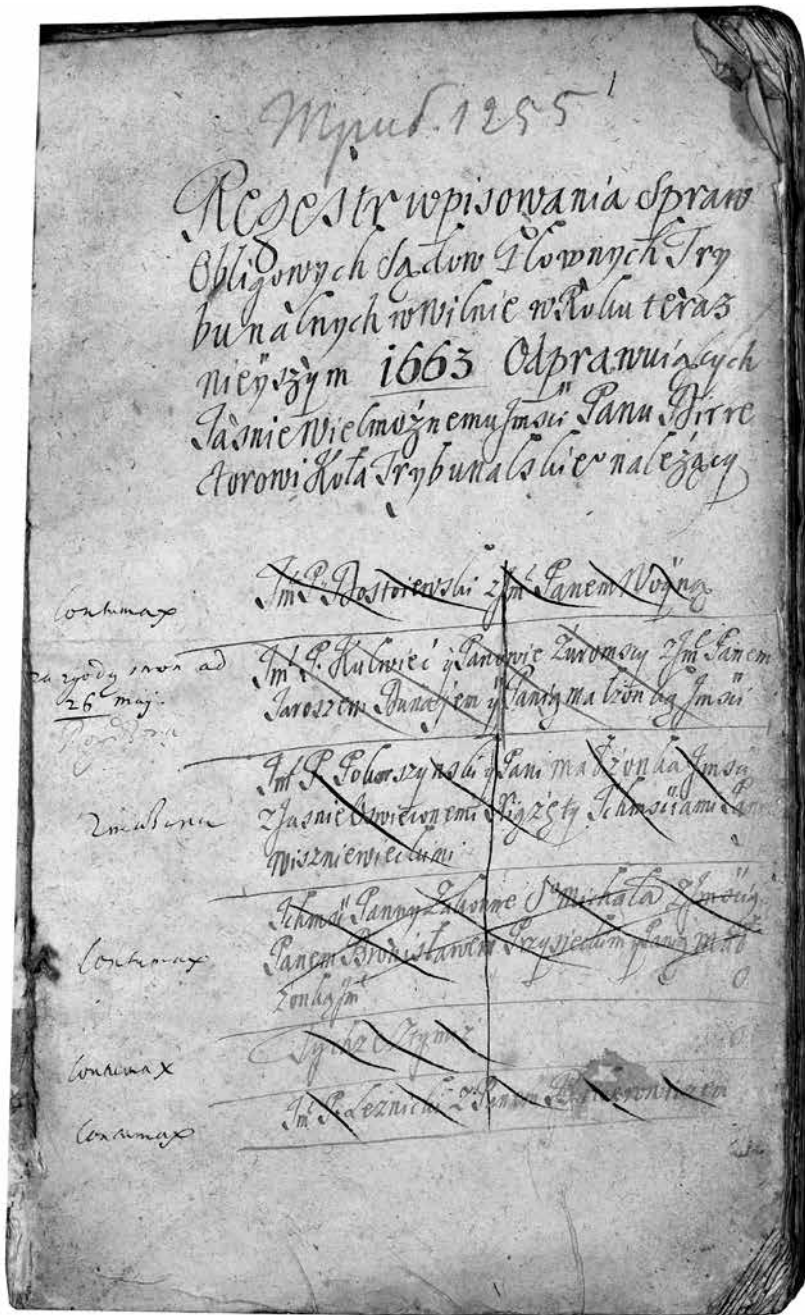 1
Триб. 1255
Regestr wpisowania Spraw
Obligowych Sądow Głownych Try
bunalnych w Wilnie w Roku teraz
nieyszym 1663 Odprawuiących
Jasnie Wielmożnemu Jmsci Panu Dirre
ctorowi Koła Trybunalskie należący
Contumax
Jm P. Dostoiewski z Jm Panem Woyną
za zgody stron ad
26 maij
Jm P. Kulwieć y Panowie Żuromscy z Jm Panem
Jaroszem Dunajem y Panią małżonką Jmsci
Jm P. y Pani małżonka Jmsci
z Jasnie Oswieconemi Xiążęty Ichmsciami Pany
Wiszniewieckimi
Contumax
Ichmsci Panny Zakonne S Michała z Jmscią
Panem Bronisławem Przysieckim y Panią mał
żonką Jm
Contumax
Tychże z tymże
Contumax
Jm P. Leżnicki z Panem